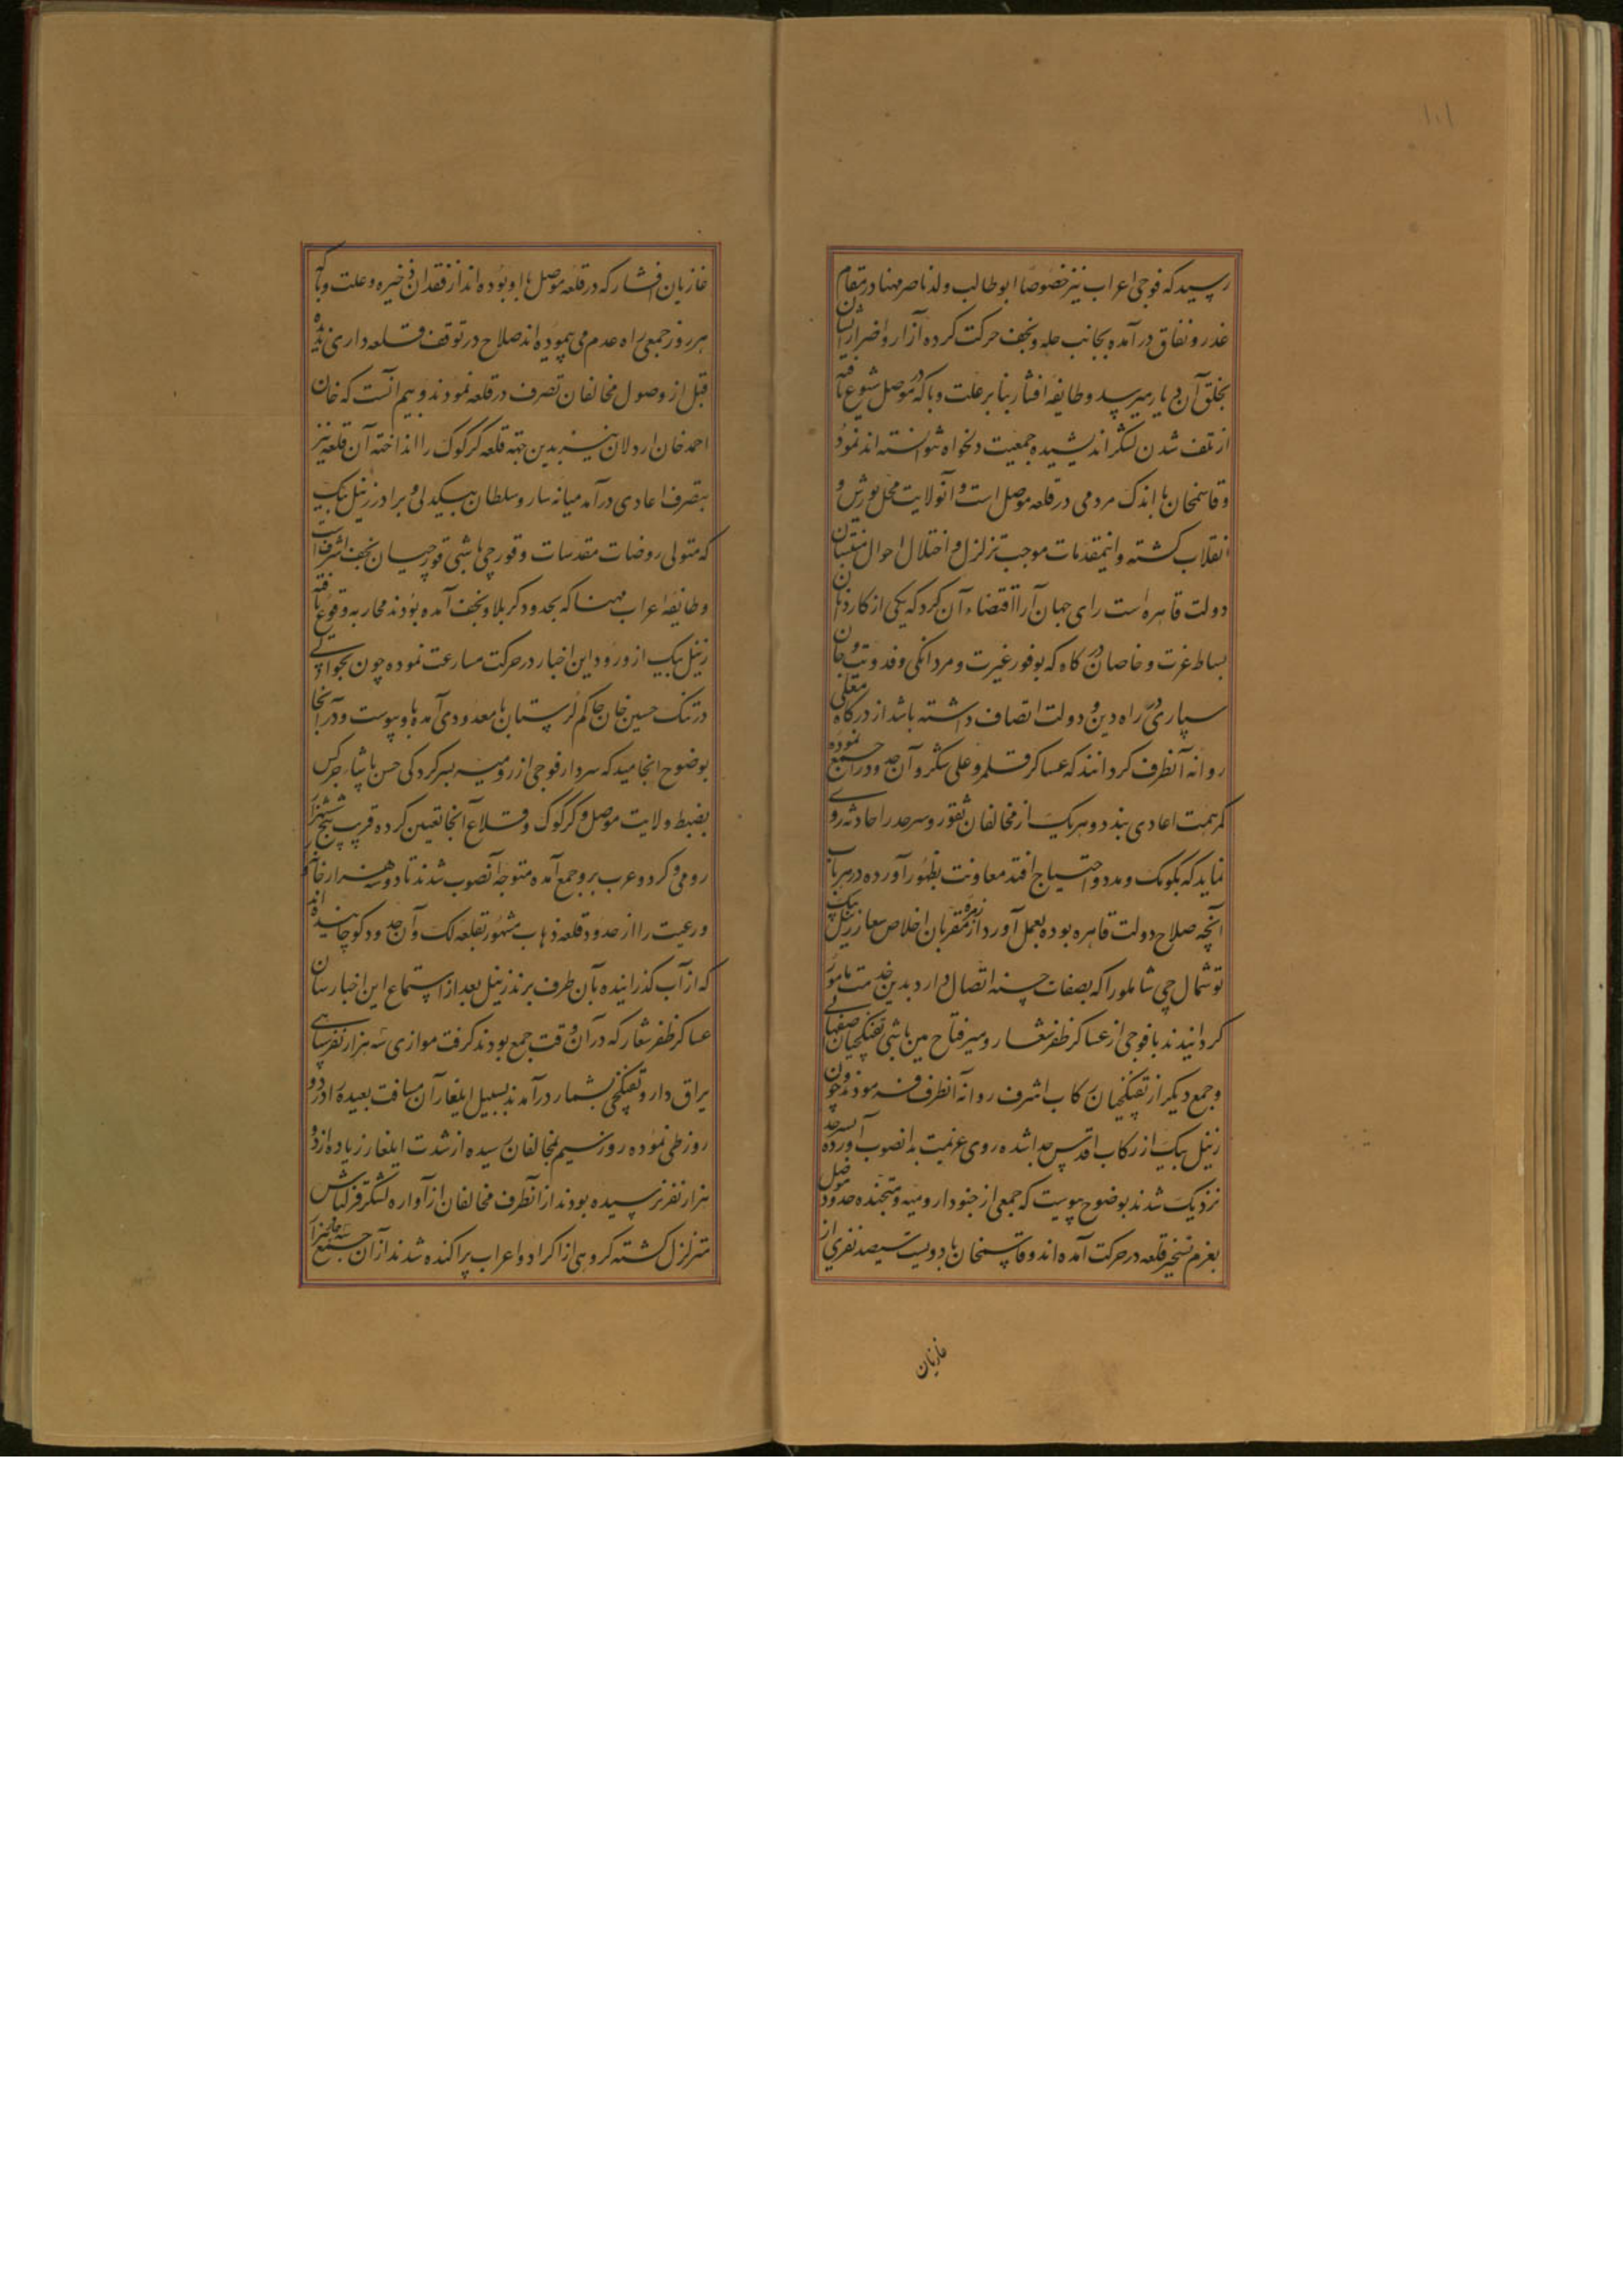 ۱۰۱
رسید که فوجی اعراب نیز خصوصا ابو طالب ولد ناصر مهنا در مقام
غدر و نفاق در آمده بجانب حله و نجف حرکت کرده آزار و اضرار ایشان
بخلق آن دیار میرسد و طایفه افشار بنا بر علت وبا که در موصل شیوع یافته
از تلف شدن لشکر اندیشیده جمعیت دلخواه نتوانسته اند نمود
و قاسمخان با اندک مردمی در قلعه موصل است و آنولایت محل یورش و
انقلاب گشته و اینمقدمات موجب تزلزل و اختلال احوال منتسبان
دولت قاهره است رای جهان آرا اقتضاء آن کرد که یکی از کاردانان
بساط عزت و خاصان درگاه که بوفور غیرت و مردانگی و فدویت و جان
سپاری در راه دین و دولت اتصاف داشته باشد از درگاه معلی
روانه آنطرف گردانند که عساکر قلمرو علی شکر و آن حدود را جمع نموده
کمر همت اعادی ببندد و هر یک از مخالفان ثغور و سرحد را حادثه روی
نماید که بکومک و مدد احتیاج افتد معاونت بظهور آورده در هر باب
آنچه صلاح دولت قاهره بوده بعمل آورد از زمره مقربان اخلاص شعار زینل بیک
توشمال چی شاملو را که بصفات حسنه اتصال دارد بدین خدمت مامور
گردانیدند با فوجی از عساکر ظفر شعار و میر فتاح مین باشی تفنکچیان صفهانی
و جمع دیگر از تفنکچیان رکاب اشرف روانه آنطرف فرمودند و چون
زینل بیک از رکاب اقدس جدا شده روی عزیمت بدانصوب آورده بسرحد
نزدیک شدند بوضوح پیوست که جمعی از جنود رومیه و متجنده حدود موصل
بعزم تسخیر قلعه در حرکت آمده اند و قاسمخان با دویست سیصد نفری از
غازیان
غازیان افشار که در قلعه موصل با او بوده اند از فقدان ذخیره و علت وبا که
هر روز جمعی راه عدم می پیموده اند صلاح در توقف و قلعه داری ندیده
قبل از وصول مخالفان تصرف در قلعه نمودند و بیم آنست که خان
احمد خان اردلان نیز بدین جهته قلعه کرکوک را انداخته آن قلعه نیز
بتصرف اعادی در آمد میانه سارو سلطان بیکدلی و برادر زینل بیک
که متولی روضات مقدسات و قورچی باشی قورچیان نجف اشرف است
و طایفه اعراب مهنا که بحدود کربلا و نجف آمده بودند محاربه وقوع یافته
زینل بیک از ورود این اخبار در حرکت مسارعت نموده چون بحوالی
درتنک حسین خان حاکم لرستان با معدودی آمده باو پیوست و در آنجا
بوضوح انجامید که سردار فوجی از رومیه بسرکردکی حسن پاشاء چرکس
بضبط ولایت موصل و کرکوک و قلاع آنجا تعیین کرده قریب پنج ششهزار
رومی و کرد و عرب برو جمع آمده متوجه آنصوب شدند تا دو سه هزار خانه
و رعیت را از حدود قلعه ذهاب مشهور بقلعه لک و آن حدود کوچانیده اند
که از آب گذرانیده بآن طرف برند زینل بعد از استماع این اخبار سان
عساکر ظفر شعار که در آن وقت جمع بودند گرفت موازی سه هزار نفر سپاهی
یراق دار و تفنکچی بشمار در آمدند بسبیل ایلغار آن مسافت بعیده را در دو
روز طی نموده روز سیم بمخالفان رسیده از شدت ایلغار زیاده از دو
هزار نفر نرسیده بودند از آنطرف مخالفان از آوازه لشکر قزلباش
متزلزل گشته گروهی از اکراد و اعراب پراکنده شدند از آن جمع سه چهار هزار